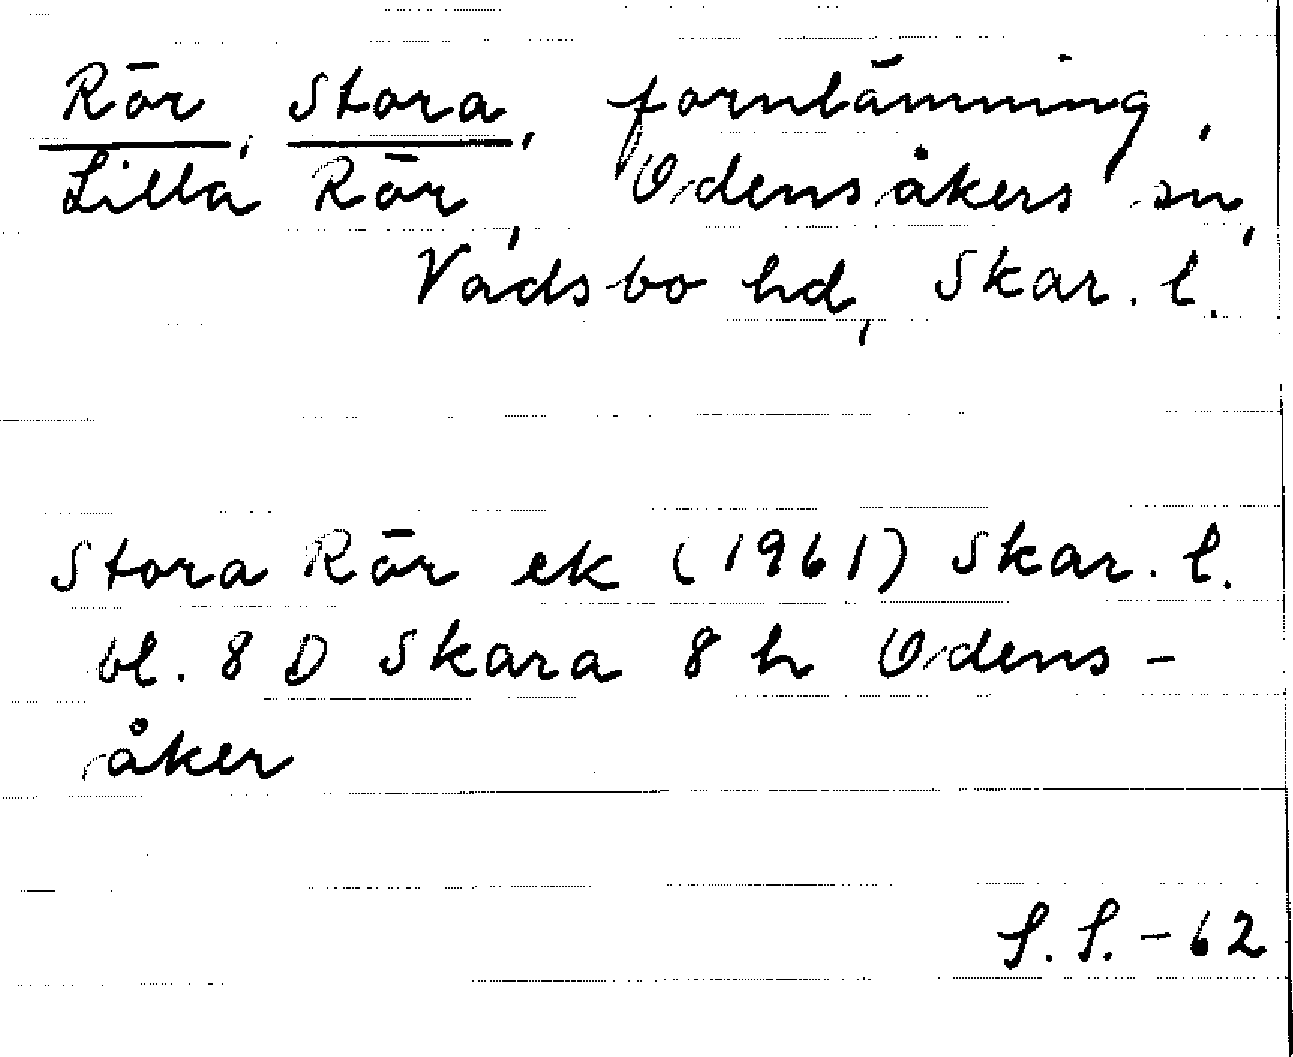 Rör, Stora, fornlämning,
Lilla Rör, Odensåkers sn,
Vadsbo hd, Skar. l.
Stora Rör ek (1961) Skar. l.
bl. 8 D Skara 8 h Odens-
åker
S. S. - 62